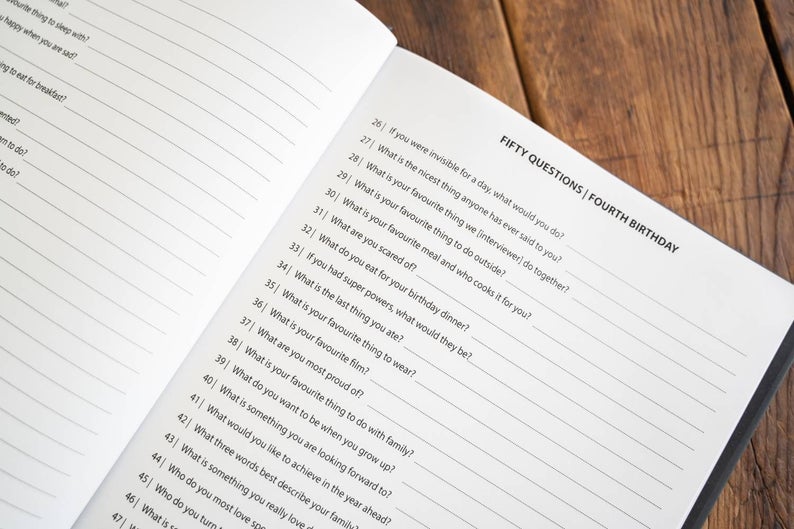 favourite thing to sleep with?
happy when you are sad?
thing to eat for breakfast?
to do?
to do?
FIFTY QUESTIONS | FOURTH BIRTHDAY
26| If you were invisible for a day, what would you do?
27| What is the nicest thing anyone has ever said to you?
28| What is your favourite thing we [interviewer] do together?
29| What is your favourite thing to do outside?
30| What is your favourite meal and who cooks it for you?
31| What are you scared of?
32| What do you eat for your birthday dinner?
33| If you had super powers, what would they be?
34| What is the last thing you ate?
35| What is your favourite thing to wear?
36| What is your favourite film?
37| What are you most proud of?
38| What is your favourite thing to do with family?
39| What do you want to be when you grow up?
40| What is something you are looking forward to?
41| What would you like to achieve in the year ahead?
42| What three words best describe your family?
43| What is something you really love
44| Who do you most love
45| Who do you turn
46| What is
47|